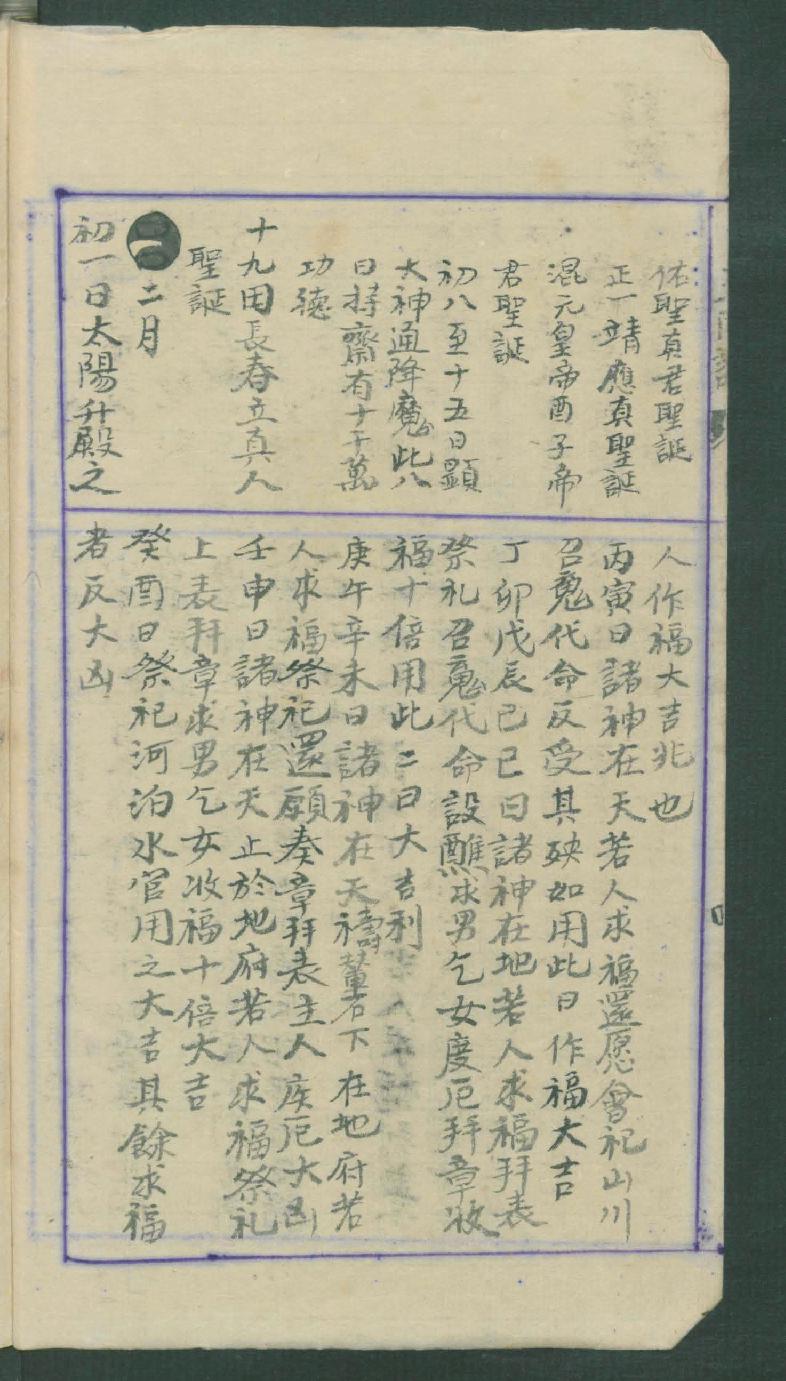 佑聖真君聖誕
正一靖應真聖誕
混元皇帝酉子帝
君聖誕
初八至十五日顕
大神通降魔此八
日持齋有十千萬
功德
十九日長春立真人
聖誕
二月
初一日太陽升殿之
人作福大吉兆也
丙寅日諸神在天若人求福還愿會祀山川
召魂代命反受其殃如用此日作福大吉
丁卯戊辰己巳日諸神在地若人求福拜表
祭礼召魂代命設醮求男乞女度厄拜章收
福十倍用此二日大吉利
庚午辛未日諸神在天禱下在地府若
人求福祭祀還願奏章拜表主人疾厄大凶
壬申日諸神在天止於地府若人求福祭礼
上表拜章求男乞女收福十倍大吉
癸酉日祭祀河泊水官用之大吉其餘求福
者反大凶